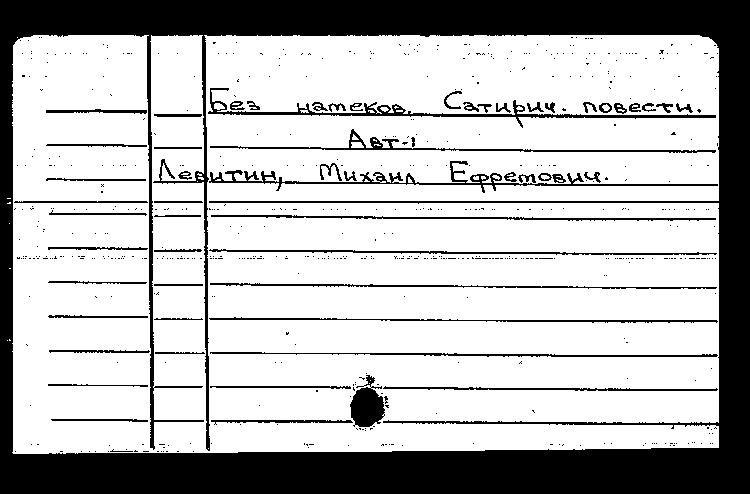 Без намеков. Сатирич. повести.
Авт-ı
Левитин, Михаил Ефремович.